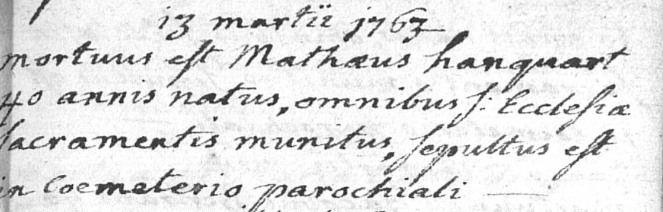 13 martii 1763
mortuus est Mathæus hanquart
40 annis natus, omnibus s: Ecclesiæ
sacramentis munitus, sepultus est
in Coemeterio parochiali